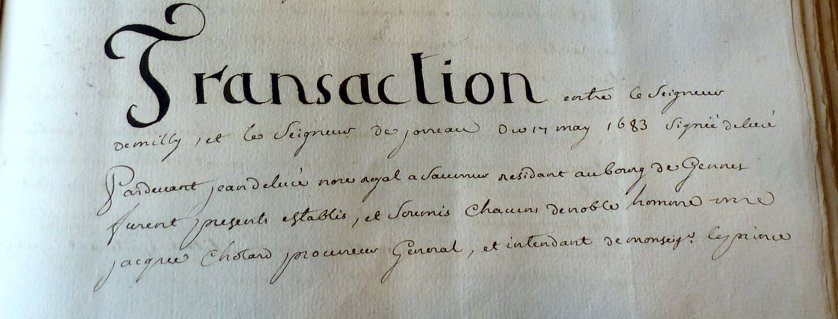 Transaction entre le Seigneur
demilly, et le Seigneur de joreau Du 17 may 1683 Signée delucé
Pardevant jean delucé nore royal a Saumur residant au bourg de Gennes
furent presents establis, et Soumis Chacuns de noble homme mre
jacques Chotard procureur General, et intendant de monseigr. le prince